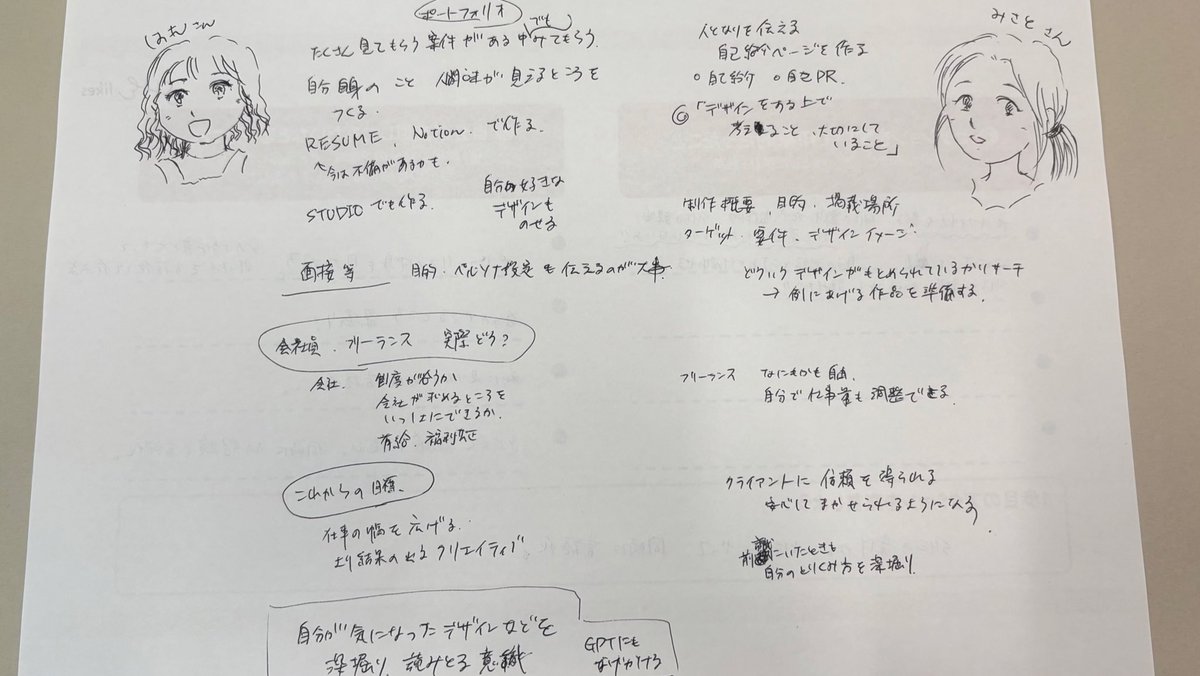 ポートフォリオ
でも
たくさん見てもらう案件がある中みてもらう。
自分自身のこと 人間味が見えるところを
つくる
RESUME、Notion で作る。
↑今は不備があるかも。
STUDIOでも作る。
自分の好きな
デザインも
のせる
みさと さん
人となりを伝える
自己紹介ページを作る
○自己紹介 ○自己PR.
◎「デザインをする上で
考えること、大切にして
いること」
制作概要、目的、掲載場所
ターゲット、要件、デザインイメージ
面接等 目的・ペルソナ設定も伝えるのが大事
どういうデザインがもとめられているかリサーチ
→例にあげる作品を準備する。
会社員・フリーランス 実際どう?
会社 制度が合うか
会社が求めるところを
いっしょにできるか
有給、福利厚生
フリーランス なにもかも自由、
自分で仕事量も調整できる
これからの目標
仕事の幅を広げる
より結果の出るクリエイティブ
クライアントに信頼を得られる
安心してまかせられるようになる
自分のとりくみ方を深掘り
自分が気になったデザインなどを
深掘り、読みとる意識
GPTにも
なげかける